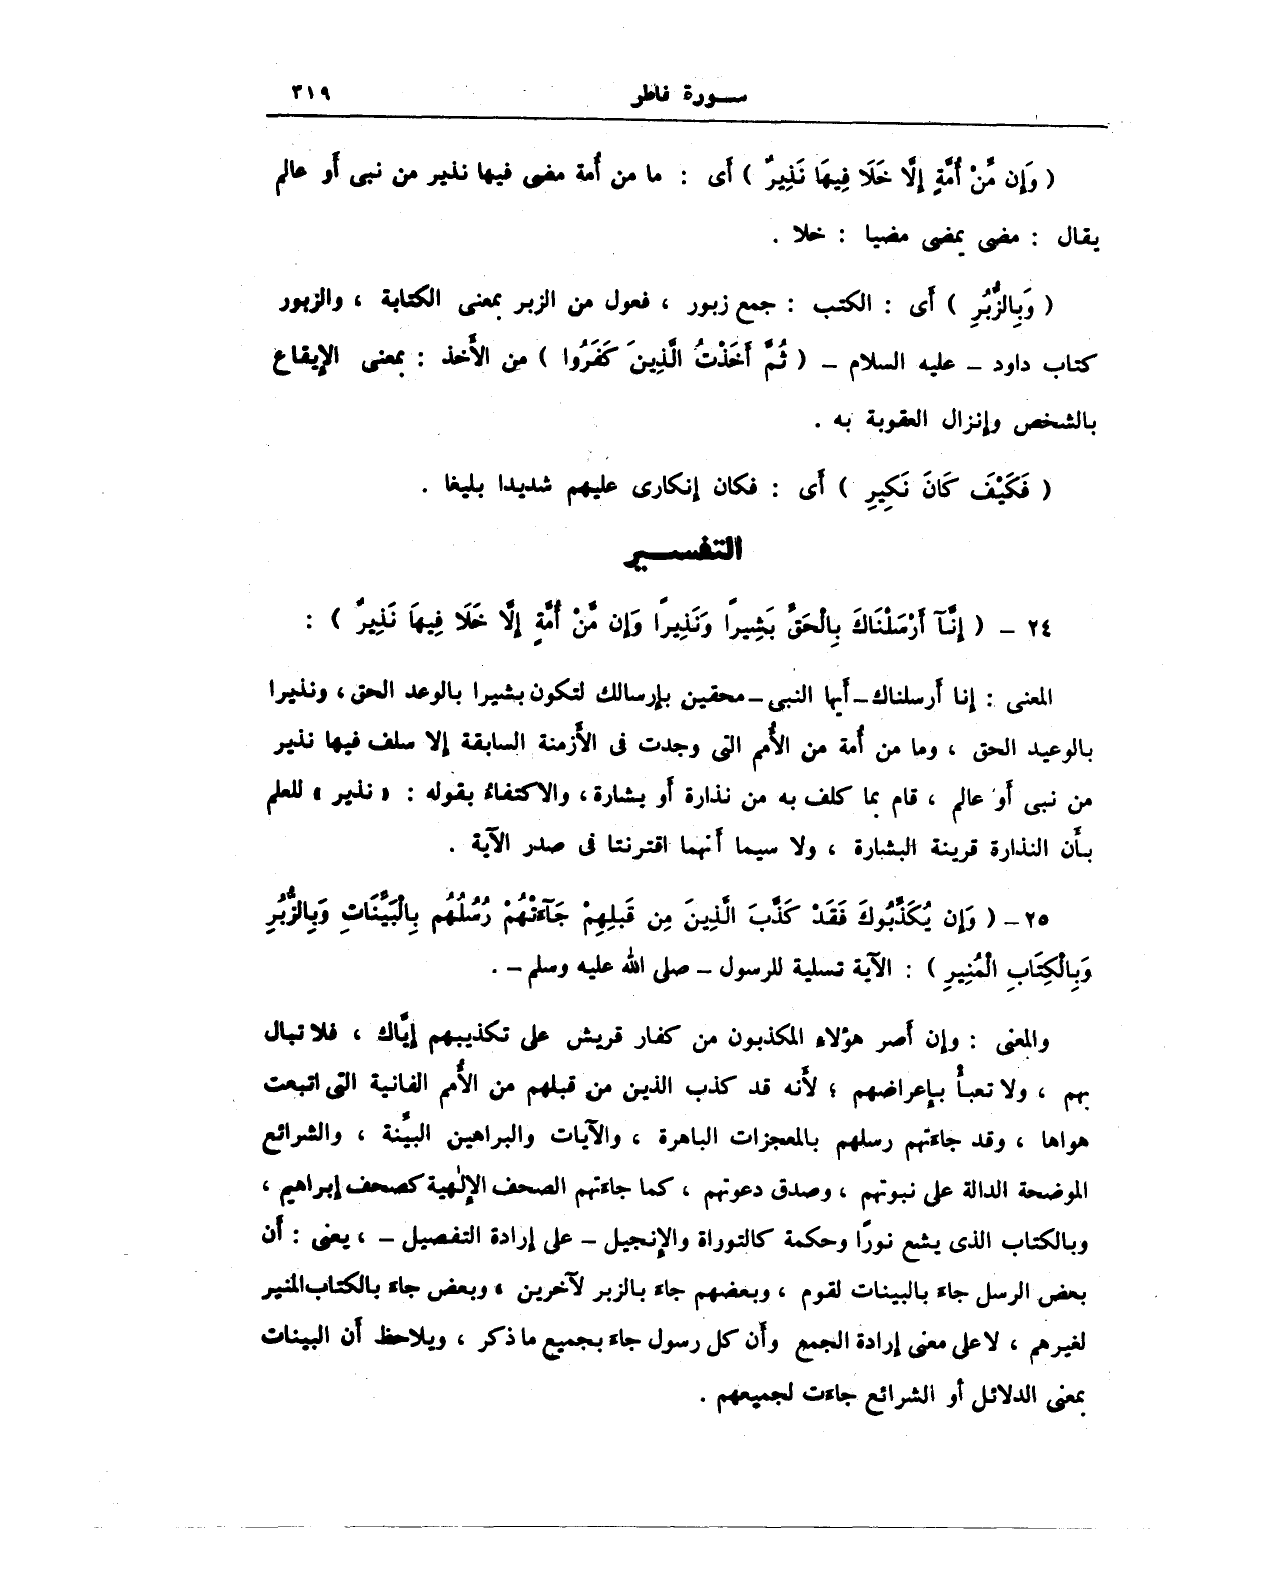 سورة فاطر ٣١٩
( وَإِن مِّنْ أُمَّةٍ إِلَّا خَلَا فِيهَا نَذِيرٌ ) أَى : ما من أُمة مضى فيها نذير من نبى أَو عالم
يقال : مضى يمضى مضيا : خلا .
( وَبِالزُّبُرِ ) أَى : الكتب : جمع زبور ، فعول من الزبر بمعنى الكتابة ، والزبور
كتاب داود – عليه السلام – ( ثُمَّ أَخَذْتُ الَّذِينَ كَفَرُوا ) من الأَخذ : بمعنى الإيقاع
بالشخص وإنزال العقوبة به .
( فَكَيْفَ كَانَ نَكِيرِ ) أَى : فكان إنكارى عليهم شديدا بليغا .
التفسير
٢٤ – ( إِنَّآ أَرْسَلْنَاكَ بِالْحَقِّ بَشِيرًا وَنَذِيرًا وَإِن مِّنْ أُمَّةٍ إِلَّا خَلَا فِيهَا نَذِيرٌ ) :
المعنى : إنا أَرسلناك – أَيها النبى – محقين بإرسالك لتكون بشيرا بالوعد الحق ، ونذيرا
بالوعيد الحق ، وما من أُمة من الأُمم التى وجدت فى الأَزمنة السابقة إلا سلف فيها نذير
من نبى أَو عالم ، قام بما كلف به من نذارة أَو بشارة ، والاكتفاءُ بقوله : « نذير » للعلم
بأَن النذارة قرينة البشارة ، ولا سيما أَنهما اقترنتا فى صدر الآية .
٢٥ – ( وَإِن يُكَذِّبُوكَ فَقَدْ كَذَّبَ الَّذِينَ مِن قَبْلِهِمْ جَآءَتْهُمْ رُسُلُهُم بِالْبَيِّنَاتِ وَبِالزُّبُرِ
وَبِالْكِتَابِ الْمُنِيرِ ) : الآية تسلية للرسول – صلى الله عليه وسلم – .
والمعنى : وإن أَصر هؤلاء المكذبون من كفار قريش على تكذيبهم إيَّاك ، فلا تبال
بهم ، ولا تعبأْ بإعراضهم ؛ لأَنه قد كذب الذين من قبلهم من الأُمم الفانية التى اتبعت
هواها ، وقد جاءتهم رسلهم بالمعجزات الباهرة ، والآيات والبراهين البيِّنة ، والشرائع
الموضحة الدالة على نبوتهم ، وصدق دعوتهم ، كما جاءتهم الصحف الإلٰهية كصحف إبراهيم ،
وبالكتاب الذى يشع نورًا وحكمة كالتوراة والإنجيل – على إرادة التفصيل – ، يعنى : أَن
بعض الرسل جاءَ بالبينات لقوم ، وبعضهم جاءَ بالزبر لآخرين ، وبعض جاءَ بالكتاب المنير
لغيرهم ، لا على معنى إرادة الجمع وأَن كل رسول جاءَ بجميع ما ذكر ، ويلاحظ أَن البينات
بمعنى الدلائل أَو الشرائع جاءَت لجميعهم .